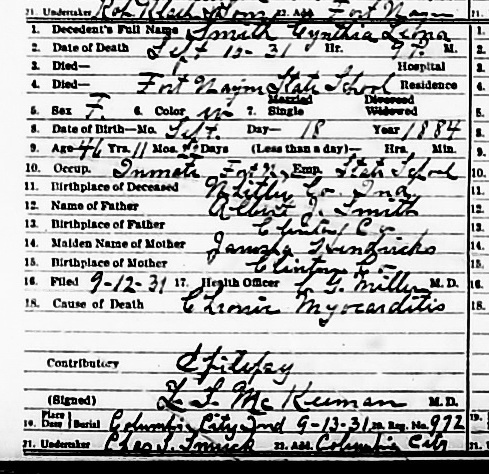 21. Undertaker Rob. Klaeh & Comp. 22. Add. Fort Wayne
1. Decedent's Full Name Smith Cynthia Leona
2. Date of Death Sept 12-31 Hr. 9 P. M.
3. Died— Hospital
4. Died— Fort Wayne State School Residence
5. Sex F. 6. Color W 7. Married Single Divorced Widowed
8. Date of Birth—Mo. Sept. Day— 18 Year 1884
9. Age 46 Yrs. 11 Mos. Days (Less than a day)— Hrs. Min.
10. Occup. Inmate Fort W. Emp. State School
11. Birthplace of Deceased Whitley Co. Ind
12. Name of Father Albert J. Smith
13. Birthplace of Father Clinton Co
14. Maiden Name of Mother Hendricks
15. Birthplace of Mother Clinton Co
16. Filed 9-12-31 17. Health Officer Miller M. D.
18. Cause of Death Chronic Myocarditis
Contributory Epilepsy
(Signed) M. D.
19. Place Date Burial Columbia City Ind 9-13-31 20. Reg. No. 972
21. Undertaker Chas. S. Smuck 22. Add. Columbia City